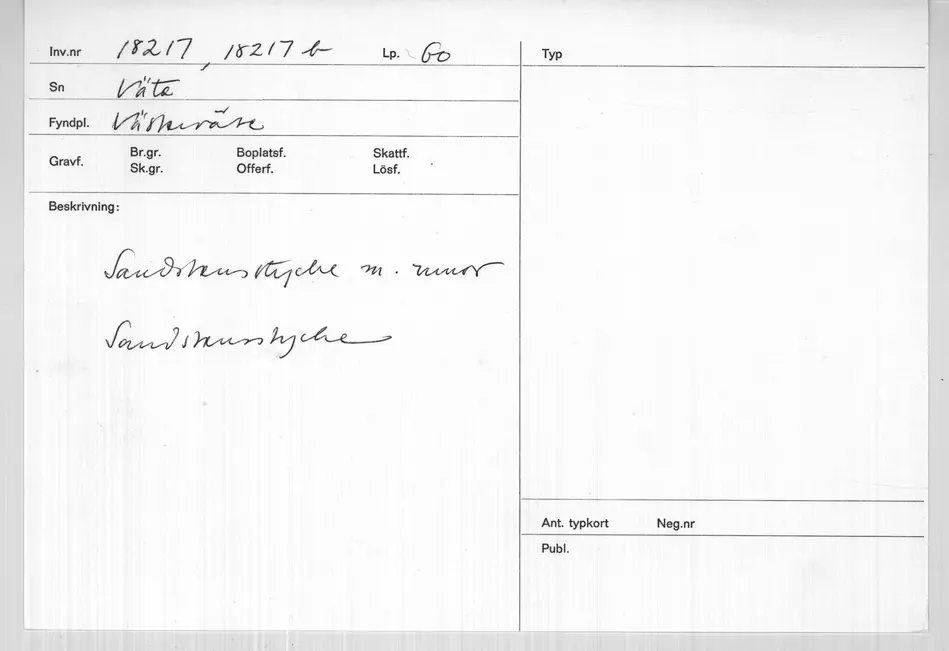 Inv.nr 18217, 18217 b Lp. Go
Typ
Sn Väte
Fyndpl.
Gravf. Br.gr. Boplatsf. Skattf.
Sk.gr. Offerf. Lösf.
Beskrivning:
Sandstensstycke m. runor
Sandstensstycke
Ant. typkort Neg.nr
Publ.